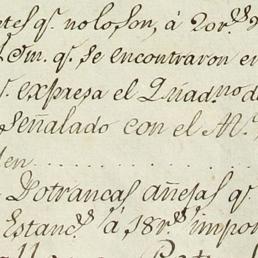 ntes q.^e no lo son, á 20 r.^s
Om. q.^e se encontraron en
q.^e expresa el Quad.^no d
señalado con el N.^o
den . . . . . . . . . . . . . .
Potrancas añejas q.^e
Estanc.^s á 18 r.^s impor